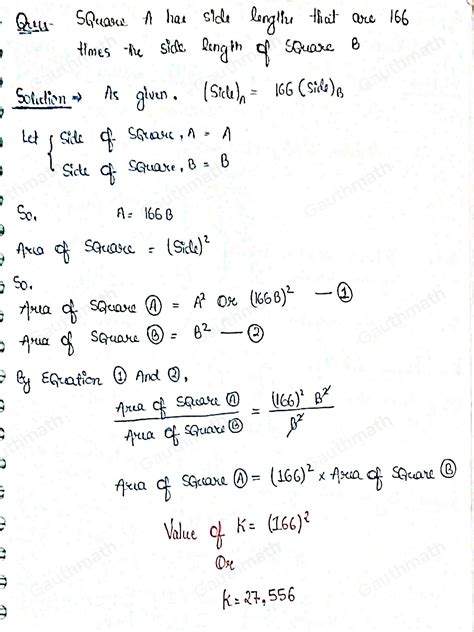 Ques- SQuare A has side lengths that are 166
times the side length of square B
Solution → As given, (Side)A = 166 (Side)B
Let { Side of SQuare, A = A
Side of SQuare, B = B
So, A = 166B
Area of SQuare = (Side)²
So,
Area of SQuare Ⓐ = A² Or (166B)² — ①
Area of SQuare Ⓑ = B² — ②
By EQuation ① And ②,
Area of SQuare Ⓐ / Area of SQuare Ⓑ = (166)² B² / B²
Area of SQuare Ⓐ = (166)² × Area of SQuare Ⓑ
Value of K = (166)²
Or
K = 27,556
Gauthmath
Gauthmath
Gauthmath
Gauthmath
Gauthmath
Gauthmath